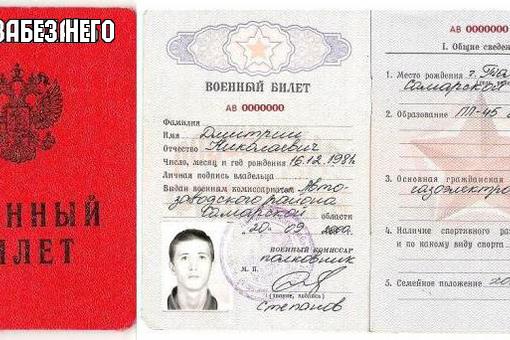 ЗАБЕЗНЕГО
ЕННЫЙ
ИЛЕТ
ВОЕННЫЙ БИЛЕТ
АВ 0000000
Фамилия
Имя Дмитрий
Отчество Николаевич
Число, месяц и год рождения 16.12.198
Личная подпись владельца
Выдан военным комиссариатом Авто-
заводского района
Самарской области
20 09
ВОЕННЫЙ КОМИССАР
полковник
М. П.
(звание, подпись)
Степанов
АВ 0000000
I. Общие сведе
1. Место рождения г.
Самарской
2. Образование ПЛ-45
3. Основная гражданская
газоэлектро
4. Наличие спортивного раз
и по какому виду спорта
5. Семейное положение хо